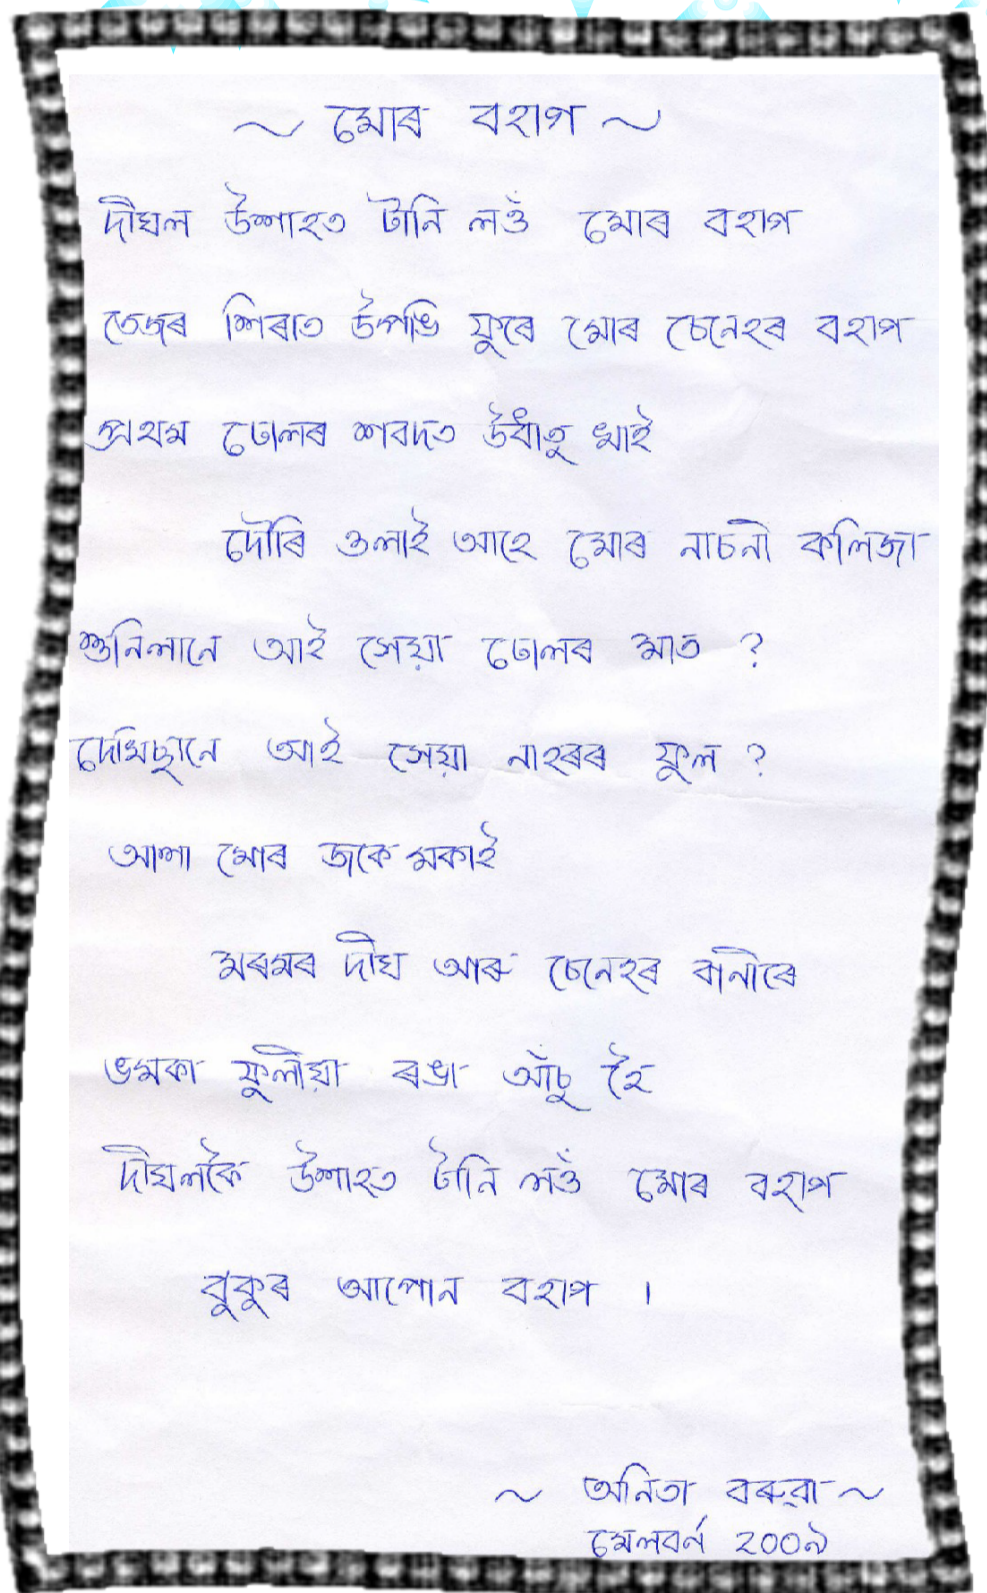 ~ মোৰ বহাগ ~
দীঘল উশাহত টানি লওঁ মোৰ বহাগ
তেজৰ শিৰাত উপঙি ফুৰে মোৰ চেনেহৰ বহাগ
প্ৰথম ঢোলৰ শবদত উধাতু খাই
দৌৰি ওলাই আহে মোৰ নাচনী কলিজা
শুনিলানে আই সেয়া ঢোলৰ মাত ?
দেখিছানে আই সেয়া নাহৰৰ ফুল ?
আশা মোৰ জকে মকাই
মৰমৰ দীঘ আৰু চেনেহৰ বানীৰে
ভমকা ফুলীয়া ৰঙা আঁচু হৈ
দীঘলকৈ উশাহত টানি লওঁ মোৰ বহাগ
বুকুৰ আপোন বহাগ ।
~ অনিতা বৰুৱা ~
মেলবৰ্ন ২০০৯